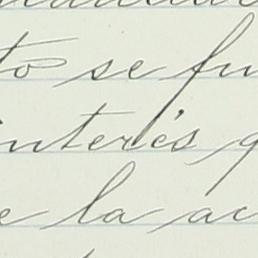 to se fu
interés q
e la ac